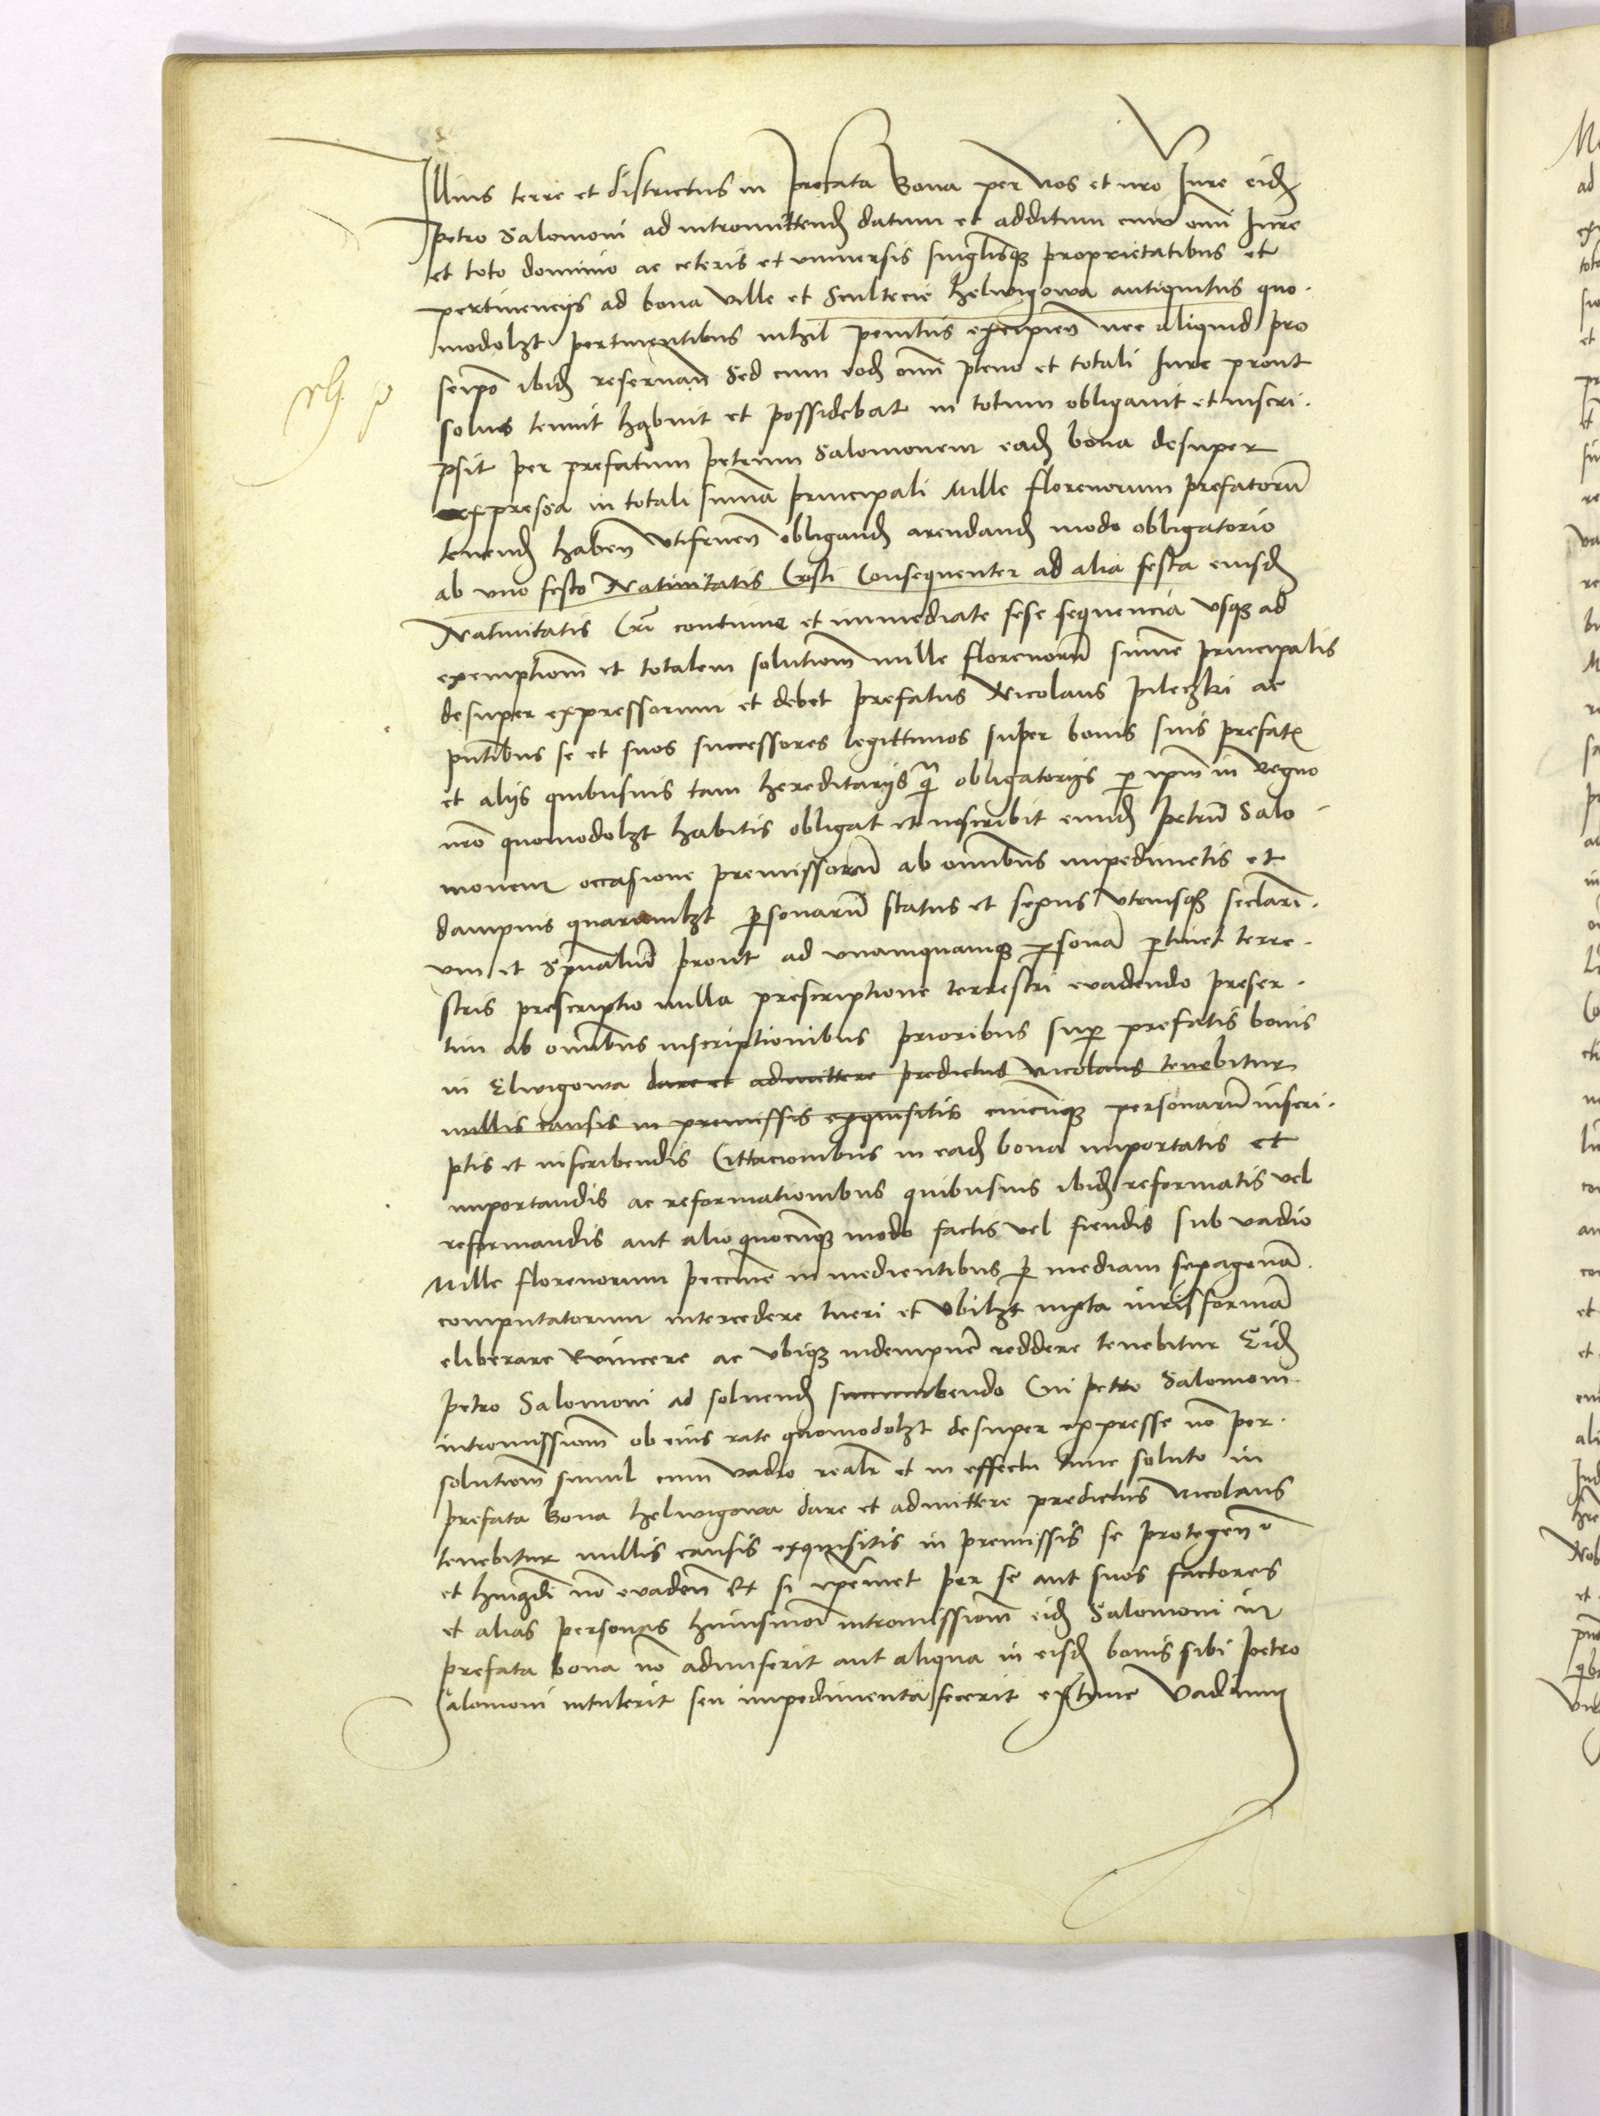 Illius terre et districtus in prefata Bona per Nos et nro Jure eidẽ
petro Salomoni ad intromittendũ datum et additum cum omi Jure
et toto dominio ac ceteris et vniuersis singlisqȝ proprietatibus et
pertinencijs ad bona ville et Scultecie helwigowa antiquitus quo-
modolȝt pertinentibus nihil penitus excipien nec aliquid pro
seipo ibidẽ reseruan Sed cum eodẽ omi pleno et totali Jure prout
solus tenuit habuit et possidebat in totum obligauit et inscri-
psit per prefatum petrum Salomonem eadẽ bona desuper
expressa in totali suma principali Mille florenorum prefatorũ
tenendũ haben vtifruen obligandũ arendandũ modo obligatorio
ab vno festo Natiuitatis Cristi Consequenter ad alia festa eiusdẽ
Natiuitatis Cri continue et immediate sese sequencia vsqȝ ad
exemptionẽ et totalem solutionẽ mille florenorũ summe principalis
desuper expressorum et debet prefatus Nicolaus pileczki ac
pntibus se et suos successores legittimos super bonis suis prefatis
et alijs quibusuis tam hereditarijs q̃ obligatorijs p ipm in Regno
nro quomodolȝt habitis obligat et inscribit eundẽ petrũ Salo-
monem occasione premissorũ ab omnibus impedimetis et
dampnis quarumlȝt psonarũ status et sexus vtriusqȝ seclari-
um et Spualiũ prout ad vnamquamqȝ psonã ptinet terre-
stris prescriptio nulla prescriptione terrestri euadendo preser-
tim ab omnibus inscriptionibus prioribus sup prefatis bonis
in Elwigowa dare et admittere predictus Nicolaus tenebitur
nullis causis in premissis exquisitis cuiuscũqȝ personarũ inscri-
ptis et inscribendis Cittacionibus in eadẽ bona importatis et
importandis ac reformationibus quibusuis ibidẽ reformatis vel
reformandis aut alio quocũqȝ modo factis vel fiendis sub vadio
Mille florenorum peccunie in medientibus p mediam sexagenã
computatorum intercedere tueri et vbilȝt iuxta iuris formã
eliberare Euincere ac vbiqȝ indempnẽ reddere tenebitur Eidẽ
petro Salomoni ad soluendũ succumbendo Cui petro Salomoni
intromissionẽ ob eius rate quomodolȝt desuper expresse nõ per-
solutionẽ simul cum vadio realr et in effectu tunc soluto in
prefata Bona helwigowa dare et admittere predictus Nicolaus
tenebitur nullis causis exquisitis in premissis se protegen
et huiusmodi nõ euaden Et si ipemet per se aut suos factores
et alias personas huiusmodi intromissionẽ eidẽ Salomoni in
prefata bona nõ admiserit aut aliqua in eisdẽ bonis sibi petro
Salomoni intulerit seu impedimenta fecerit extunc Vadium